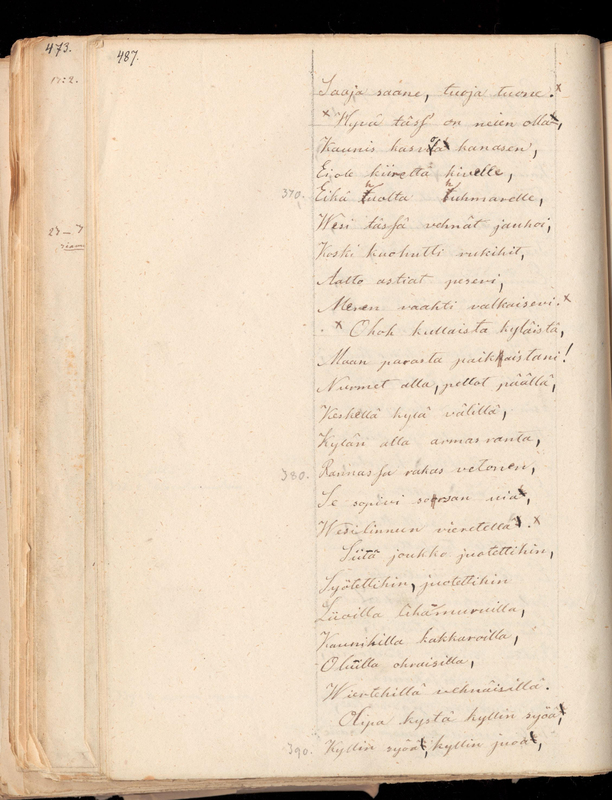 473.
487.
Saaja saane, tuoja tuone. x
x Hyvä tässä on neien olla,
Kaunis kasvoa kanasen,
Eiole kiirettä kivelle,
370. Eikä huolta huhmarelle,
Wesi tässä vehnät jauhoi,
Koski kuohutti rukihit,
Aalto astiat pesevi,
Meren vaahti valkaisevi. x
x Ohoh kullaista kyläistä,
Maan parasta paikkaistani!
Nurmet alla, pellot päällä,
Keskellä kylä välillä,
Kylän alla armas ranta,
380. Rannassa rakas vetonen,
Se sopivi sorsan uia,
Wesilinnun vieretellä. x
Siitä joukko juotettihin,
Syötettihin, juotettihin
Liioilla lihamuruilla,
Kaunihilla kakkaroilla,
Oluilla ohraisilla,
Wiertehillä vehnäisillä.
Olipa kystä kyllin syöä,
390. Kyllin syöä, kyllin juoa,